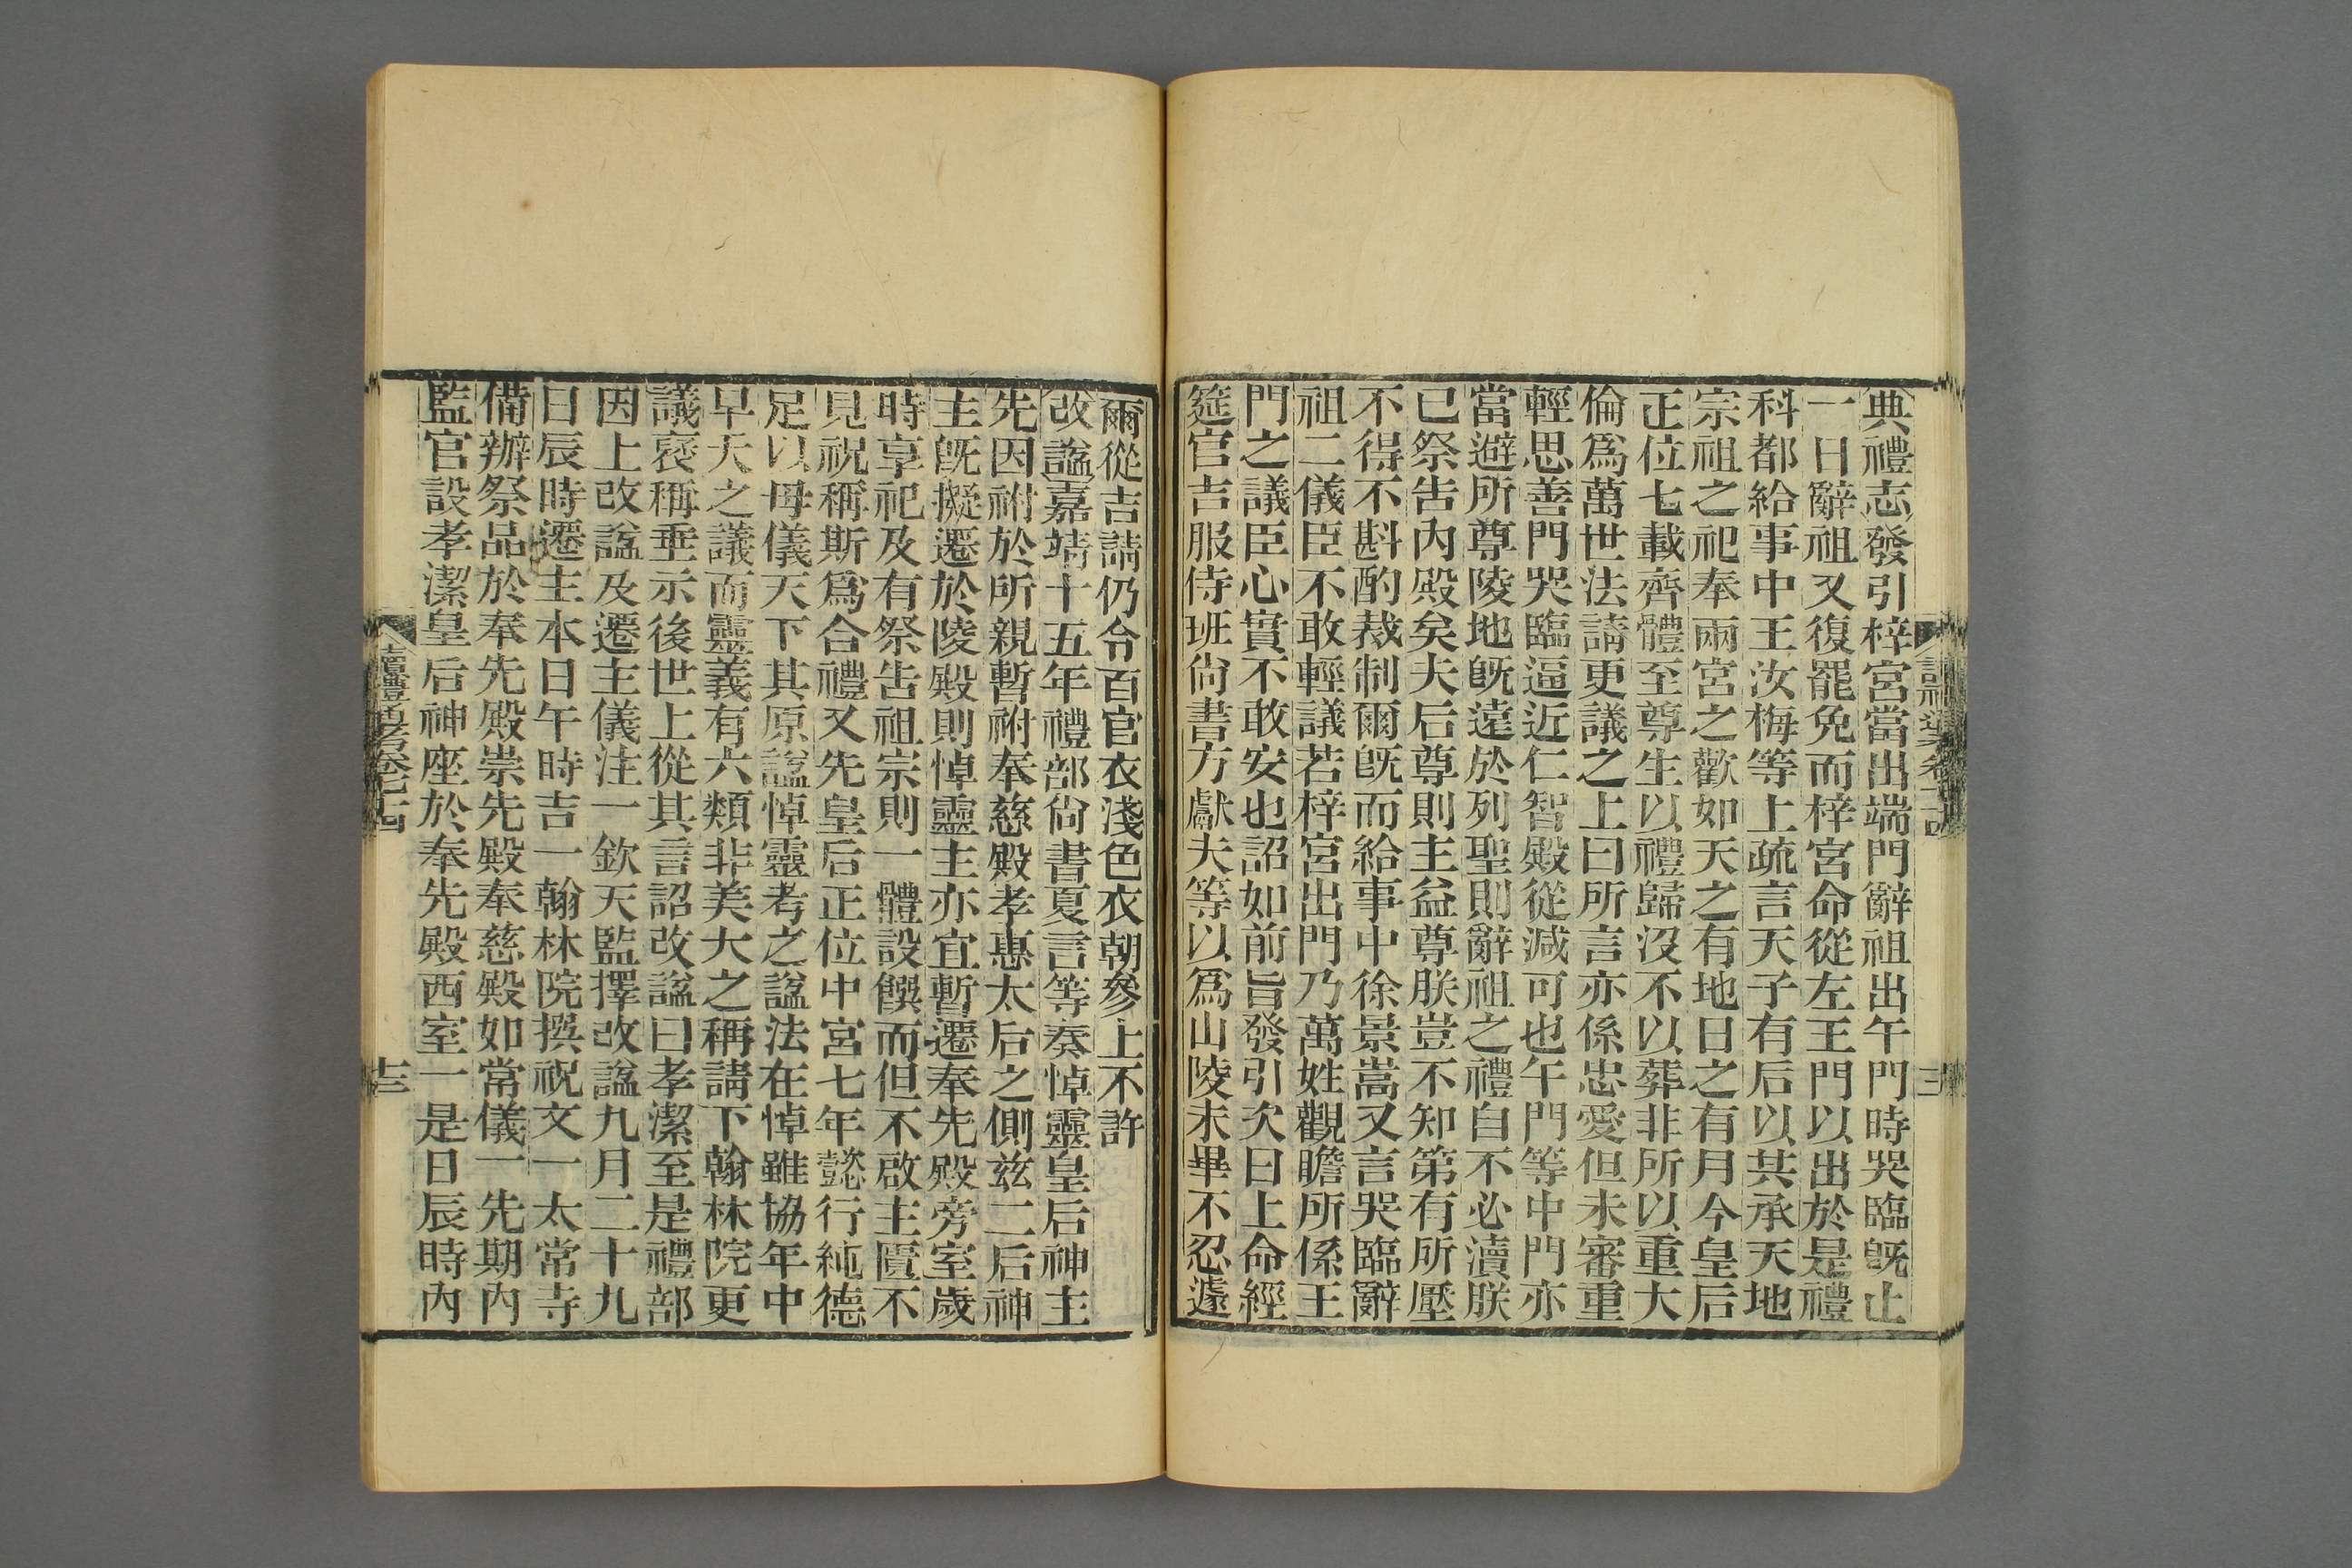 典禮志發引梓宮當出端門辭祖出午門時哭臨旣止
一日辭祖又復罷免而梓宮命從左王門以出於是禮
科都給事中王汝梅等上疏言天子有后以共承天地
宗祖之祀奉兩宮之歡如天之有地日之有月今皇后
正位七載齊體至尊生以禮歸沒不以葬非所以重大
倫爲萬世法請更議之上曰所言亦係忠愛但未審重
輕思善門哭臨逼近仁智殿從減可也午門等中門亦
當避所尊陵地旣遠於列聖則辭祖之禮自不必瀆朕
已祭告內殿矣夫后尊則主益尊朕豈不知第有所壓
不得不斟酌裁制爾旣而給事中徐景嵩又言哭臨辭
祖二儀臣不敢輕議若梓宮出門乃萬姓觀瞻所係王
門之議臣心實不敢安也詔如前旨發引次日上命經
筵官吉服侍班尙書方獻夫等以爲山陵未畢不忍遽
爾從吉請仍令百官衣淺色衣朝參上不許
改諡嘉靖十五年禮部尙書夏言等奏悼靈皇后神主
先因祔於所親暫祔奉慈殿孝惠太后之側茲二后神
主旣擬遷於陵殿則悼靈主亦宜暫遷奉先殿旁室歲
時享祀及有祭告祖宗則一體設饌而但不啟主匱不
見祝稱斯爲合禮又先皇后正位中宮七年懿行純德
足以母儀天下其原諡悼靈考之諡法在悼雖協年中
早夭之議而靈義有六類非美大之稱請下翰林院更
議褒稱垂示後世上從其言詔改諡曰孝潔至是禮部
因上改諡及遷主儀注一欽天監擇改諡九月二十九
日辰時遷主本日午時吉一翰林院撰祝文一太常寺
備辦祭品於奉先殿崇先殿奉慈殿如常儀一先期內
監官設孝潔皇后神座於奉先殿西室一是日辰時內
十三